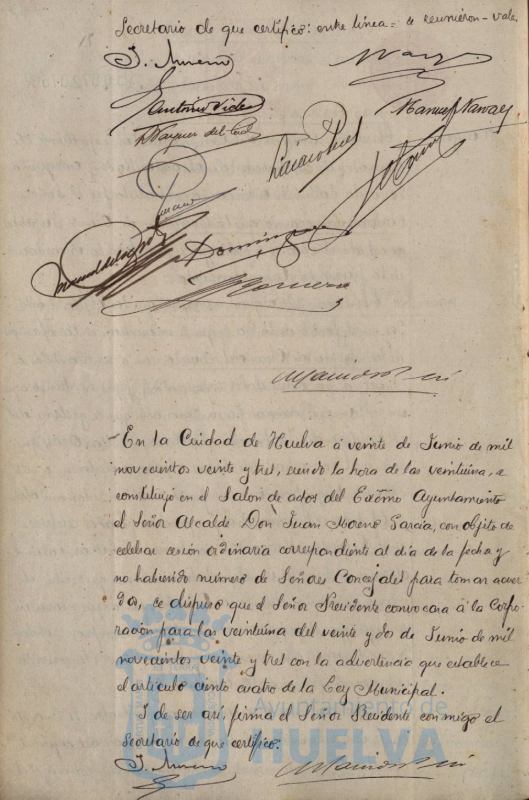 Secretario de que certifico: entre linea = se reunieron - vale
J. Moreno
Antonio Vides
Vazquez del Cid
Manuel Navas
Dominguez
J. Romero
En la Ciudad de Huelva á veinte de Junio de mil
novecientos veinte y tres, siendo la hora de las veintiuna, se
constituyó en el Salon de actos del Excmo Ayuntamiento
el Señor Alcalde Don Juan Moreno Garcia, con objeto de
celebrar sesión ordinaria correspondiente al dia de la fecha y
no habiendo número de Señores Concejales para tomar acuer
dos, se dispuso que el Señor Presidente convocara á la Corpo-
ración para las veintiuna del veinte y dos de Junio de mil
novecientos veinte y tres con la advertencia que establece
el articulo ciento cuatro de la Ley Municipal.
I de ser asi, firma el Señor Presidente conmigo el
Secretario de que certifico:
J. Moreno
Ayuntamiento de
HUELVA